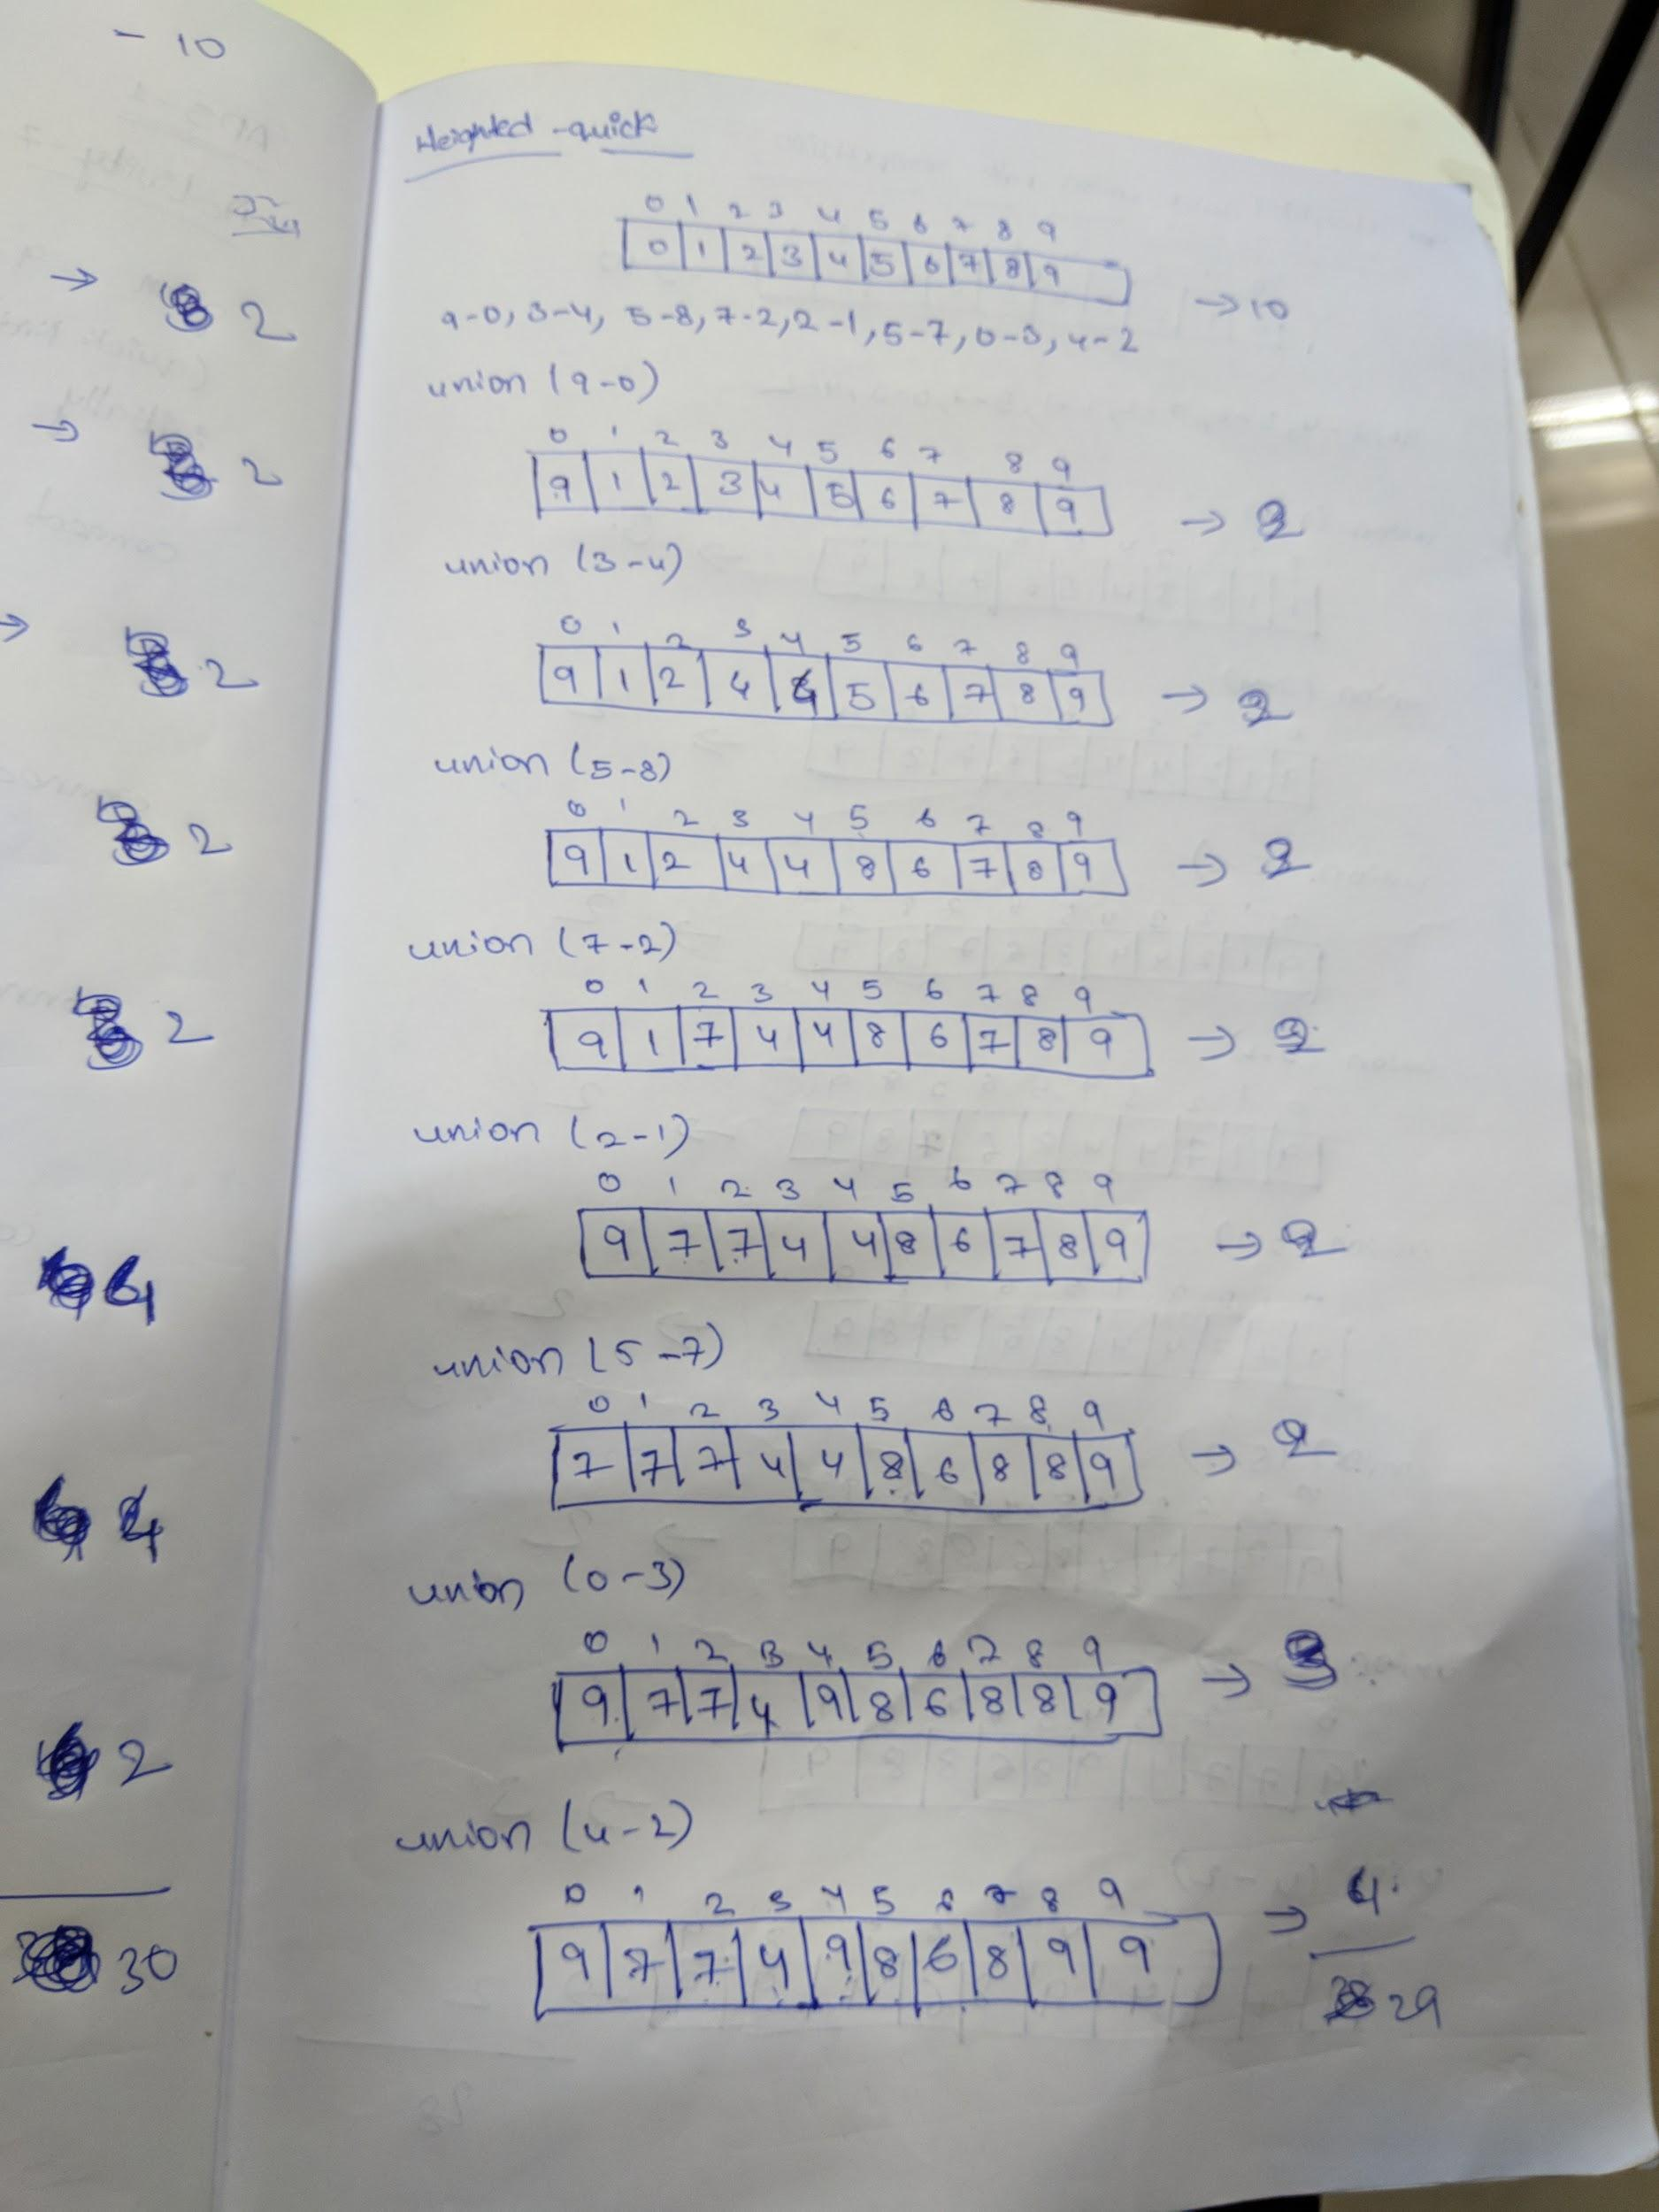 - 10
→ 2
→ 2
→ 2
2
2
4
4
2
30
Weighted-quick
0 1 2 3 4 5 6 7 8 9
0 1 2 3 4 5 6 7 8 9
→ 10
9-0, 3-4, 5-8, 7-2, 2-1, 5-7, 0-3, 4-2
union (9-0)
0 1 2 3 4 5 6 7 8 9
9 1 2 3 4 5 6 7 8 9 → 2
union (3-4)
0 1 2 3 4 5 6 7 8 9
9 1 2 4 4 5 6 7 8 9 → 2
union (5-8)
0 1 2 3 4 5 6 7 8 9
9 1 2 4 4 8 6 7 8 9 → 2
union (7-2)
0 1 2 3 4 5 6 7 8 9
9 1 7 4 4 8 6 7 8 9 → 2
union (2-1)
0 1 2 3 4 5 6 7 8 9
9 7 7 4 4 8 6 7 8 9 → 2
union (5-7)
0 1 2 3 4 5 6 7 8 9
7 7 7 4 4 8 6 8 8 9 → 2
union (0-3)
0 1 2 3 4 5 6 7 8 9
9 7 7 4 9 8 6 8 8 9 → 3
union (4-2)
0 1 2 3 4 5 6 7 8 9
9 7 7 4 9 8 6 8 9 9 → 4
29